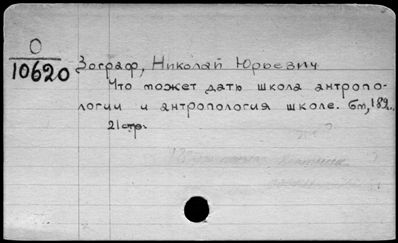 О
10620
Зограф, Николай Юрьевич
Что может дать школа антропо-
логии и антропология школе. Бм, 182.,
21стр.